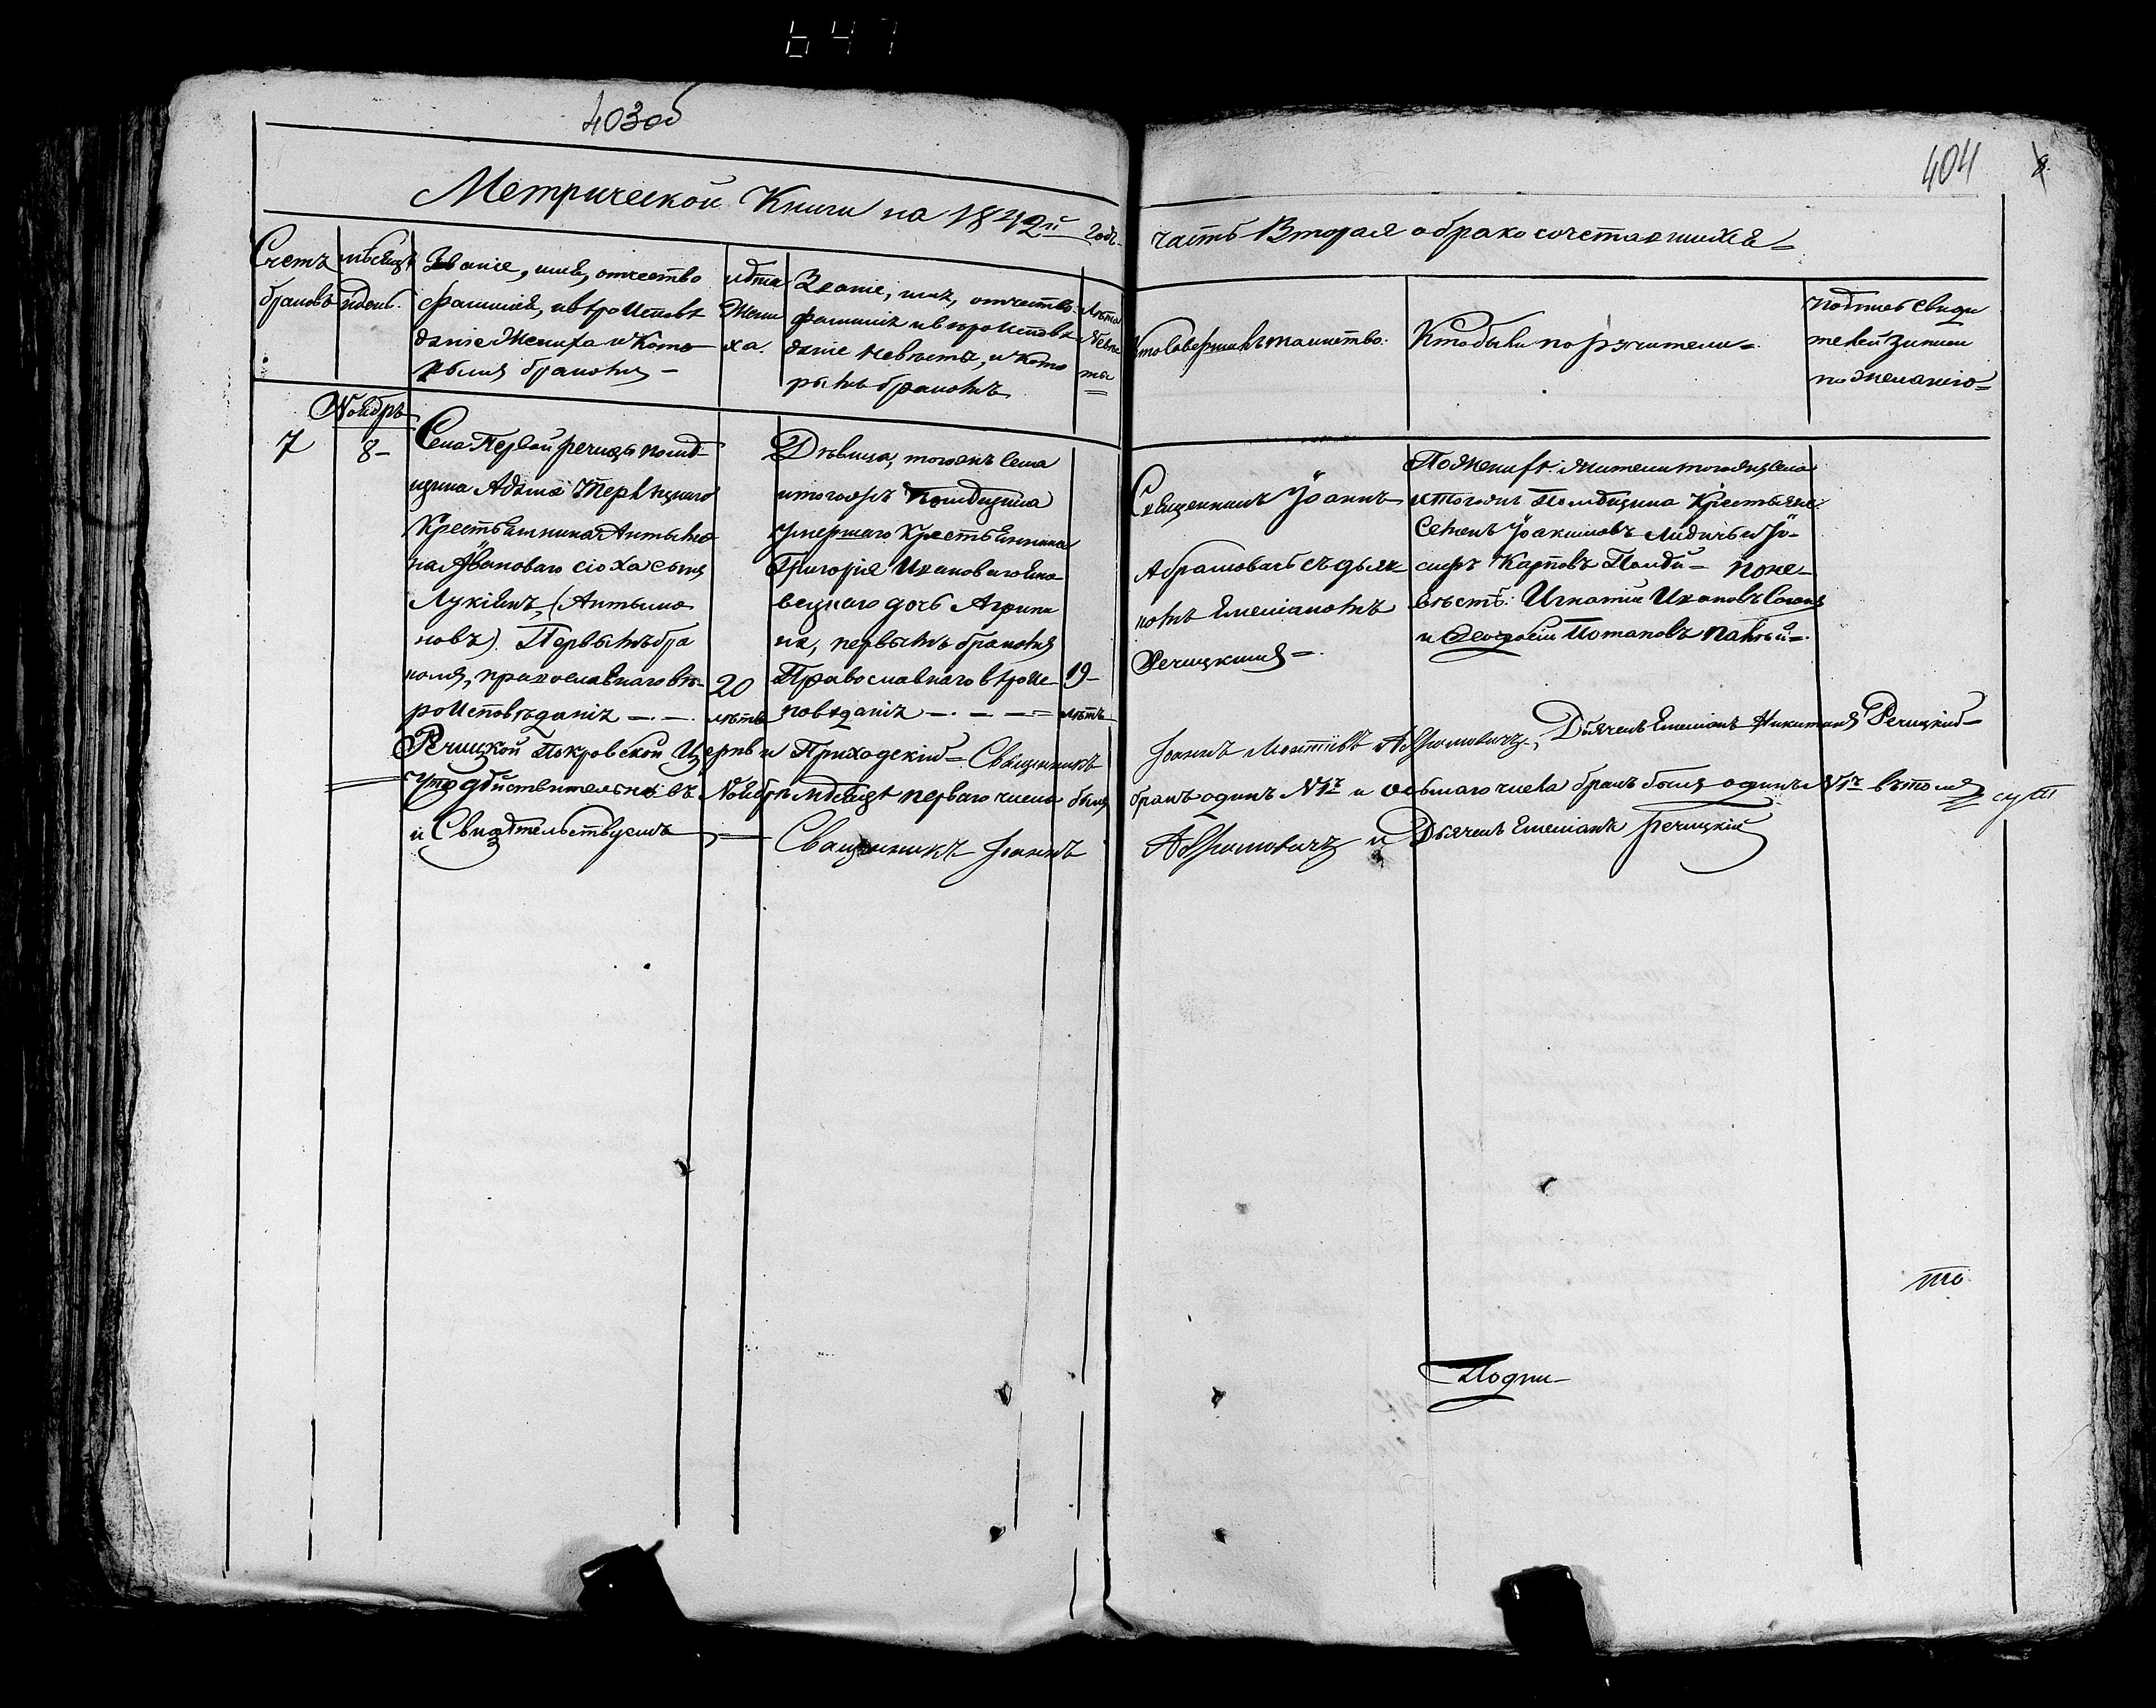 647
403об
Метрической Книги на 1842й годъ
часть Вторая о бракосочетавшихся
404
Счетъ
браковъ
мѣсяцъ
и день.
Званіе, имя, отчество
фамилія, и вѣроисповѣ
даніе Жениха и Кото
рымъ бракомъ –
лѣта
Жени
ха.
Званіе, имя, отчество
фамилія и вѣроисповѣ
даніе невѣсты, и кото
рымъ бракомъ
лѣта
Невѣс
ты
Кто Совершилъ таинство.
Кто были поручители.
подпись свиде
телей записи
по желанію
Ноябрь
7
8
Села Первой речицы помѣ
щика Адама
Крестьянина Антымо
на Ивановаго сына
Лукіянъ, (Антымо
новъ). Первымъ бра
комъ, православнаго вѣ
роисповѣданія
20
лѣтъ
Дѣвица, тогожъ села
и тогожъ Помѣщика
умершаго Крестьянина
Григорія Ивановаго
дочь Агрипи
на, первымъ бракомъ
Православнаго вѣроис
повѣданія
19
лѣтъ
Священникъ Іоаннъ
Абрамовичъ съ дьяч
комъ Емеліаномъ
Речицкимъ
По женихѣ: жители тогожъ села
и тогожъ Помѣщика Крестьяне
Семенъ Іоакимовъ и Іо
сифъ Карповъ по не
вѣстѣ: Игнатій Ивановъ
и Феодосій Потаповъ
Речицкой Покровской Церкви Приходскій Священникъ
Іоаннъ Абрамовичъ, Дьячекъ Емеліанъ Никитинъ Речицкій
Что дѣйствительно въ Ноябрѣ мѣсяцѣ перваго числа былъ
бракъ одинъ №1й и осьмаго числа бракъ былъ одинъ №1й въ томъ
и Свидѣтельствуемъ
Священникъ Іоаннъ
Абрамовичъ и Дьячекъ Емеліанъ Речицкій
Подпи